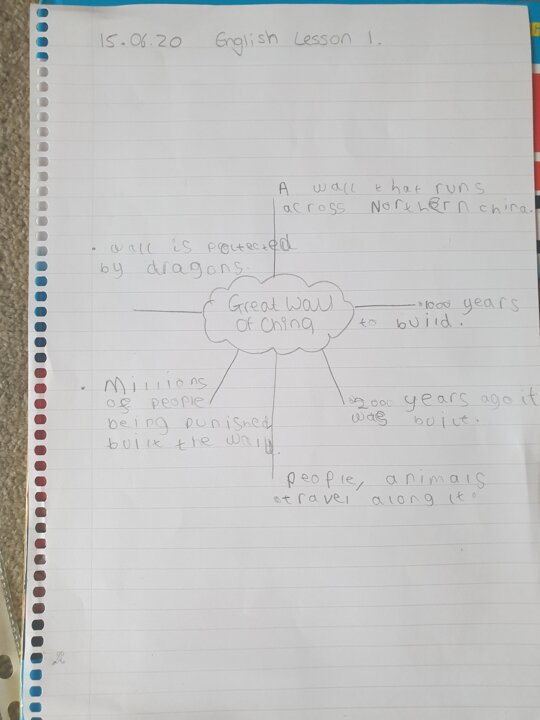 15.06.20 English Lesson 1.
A wall that runs
across Northern china.
• Wall is protected
by dragons.
Great Wall
of China
1000 years
to build.
• Millions
of people
being punished
built the wall.
2000 years ago it
was built.
people, animals
travel along it.